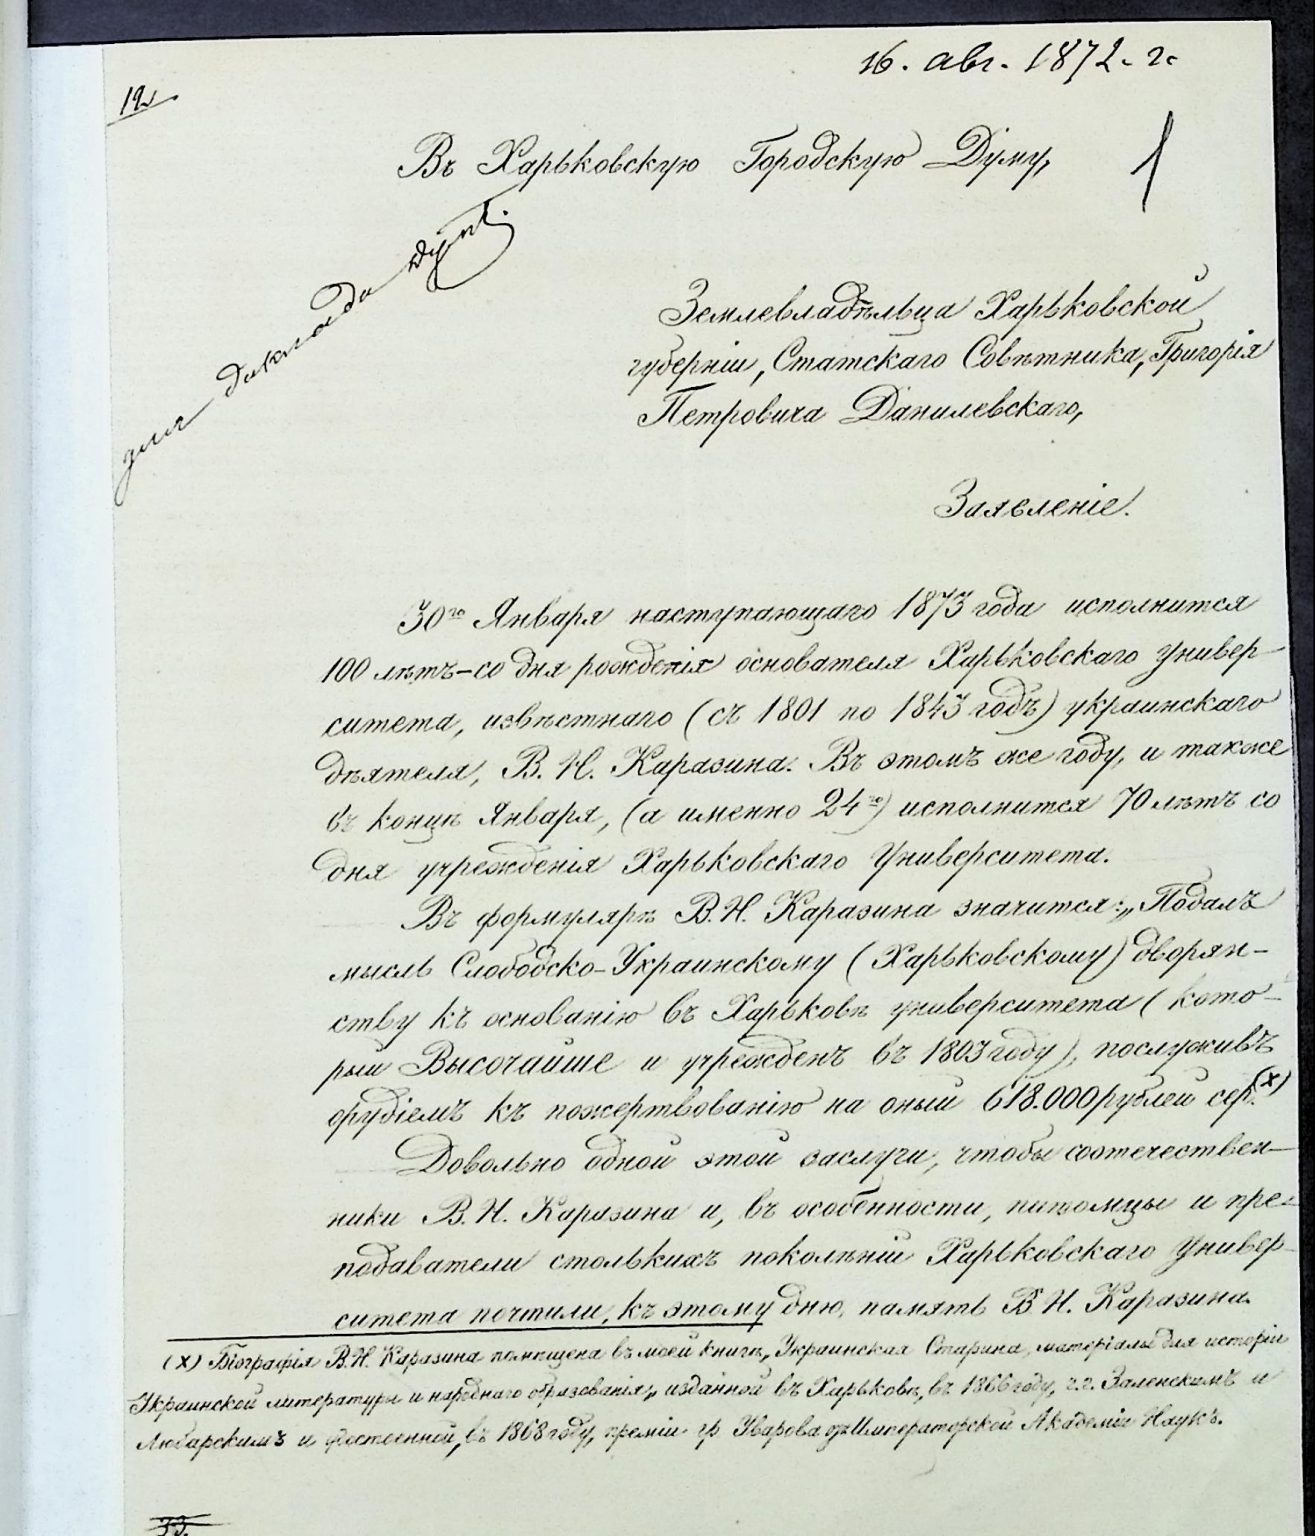 16. авг. 1872. г.
12
Въ Харьковскую Городскую Думу,
1
для доклада Думѣ.
Землевладѣльца Харьковской
губерніи, Статскаго Совѣтника, Григорія
Петровича Данилевскаго,
Заявленіе.
30го Января наступающаго 1873 года исполнится
100 лѣтъ–со дня рожденія основателя Харьковскаго Универ-
ситета, извѣстнаго (съ 1801 по 1843 годъ) украинскаго
дѣятеля, В. Н. Каразина. Въ этомъ же году, и также
въ концѣ Января, (а именно 24го) исполнится 70 лѣтъ со
дня учрежденія Харьковскаго Университета.
Въ формулярѣ В. Н. Каразина значится: „Подалъ
мысль Слободско-Украинскому (Харьковскому) дворян-
ству къ основанію въ Харьковѣ университета (кото-
рый Высочайше и учрежденъ въ 1803 году), послуживъ
орудіемъ къ пожертвованію на оный 618.000 рублей сер. (х)
Довольно одной этой заслуги, чтобы соотечествен-
ники В. Н. Каразина и, въ особенности, питомцы и пре-
подаватели столькихъ поколѣній Харьковскаго Универ-
ситета почтили, къ этому дню, память В. Н. Каразина.
(х) Біографія В. Н. Каразина помѣщена въ моей книгѣ, „Украинская Старина, матеріалы для исторіи
Украинской литературы и народнаго образованія„ изданной въ Харьковѣ, въ 1866 году, г.г. Заленскимъ и
Любарскимъ и удостоенной, въ 1868 году, преміи гр. Уварова отъ Императорской Академіи Наукъ.
33.